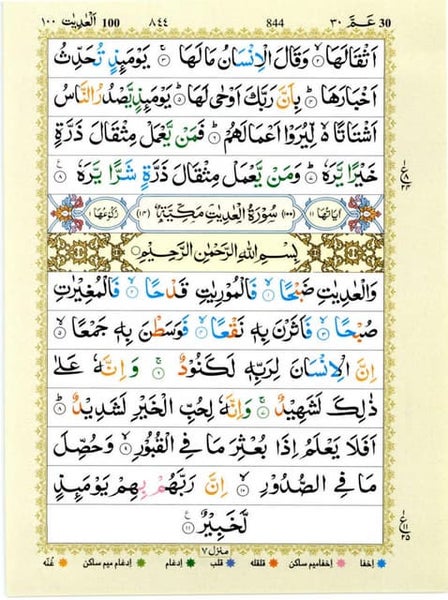 30 عَمَّ ٣٠ 844 ٨٤٤ 100 الْعٰدِيٰت ١٠٠
اَثْقَالَهَا ۙ﴿۲﴾ وَقَالَ الْاِنْسَانُ مَا لَهَا ۚ﴿۳﴾ يَوْمَىِٕذٍ تُحَدِّثُ
اَخْبَارَهَا ۙ﴿۴﴾ بِاَنَّ رَبَّكَ اَوْحٰى لَهَا ؕ﴿۵﴾ يَوْمَىِٕذٍ يَّصْدُرُ النَّاسُ
اَشْتَاتًا ۙ۬ لِّيُرَوْا اَعْمَالَهُمْ ؕ﴿۶﴾ فَمَنْ يَّعْمَلْ مِثْقَالَ ذَرَّةٍ
خَيْرًا يَّرَهٗ ؕ﴿۷﴾ وَمَنْ يَّعْمَلْ مِثْقَالَ ذَرَّةٍ شَرًّا يَّرَهٗ ﴿۸﴾
اٰيَاتُهَا ١١ ﴿١٠٠﴾ سُوْرَةُ الْعٰدِيٰتِ مَكِّيَّةٌ ﴿١٤﴾ رُكُوْعُهَا ١
بِسْمِ اللّٰهِ الرَّحْمٰنِ الرَّحِيْمِ
وَالْعٰدِيٰتِ ضَبْحًا ۙ﴿۱﴾ فَالْمُوْرِيٰتِ قَدْحًا ۙ﴿۲﴾ فَالْمُغِيْرٰتِ
صُبْحًا ۙ﴿۳﴾ فَاَثَرْنَ بِهٖ نَقْعًا ۙ﴿۴﴾ فَوَسَطْنَ بِهٖ جَمْعًا ۙ﴿۵﴾
اِنَّ الْاِنْسَانَ لِرَبِّهٖ لَكَنُوْدٌ ۚ﴿۶﴾ وَاِنَّهٗ عَلٰى
ذٰلِكَ لَشَهِيْدٌ ۚ﴿۷﴾ وَاِنَّهٗ لِحُبِّ الْخَيْرِ لَشَدِيْدٌ ؕ﴿۸﴾
اَفَلَا يَعْلَمُ اِذَا بُعْثِرَ مَا فِى الْقُبُوْرِ ۙ﴿۹﴾ وَحُصِّلَ
مَا فِى الصُّدُوْرِ ۙ﴿۱۰﴾ اِنَّ رَبَّهُمْ بِهِمْ يَوْمَىِٕذٍ
لَّخَبِيْرٌ ﴿۱۱﴾
منزل ٧
اخفا اخفامیم ساکن قلقله قلب ادغام ادغام میم ساکن غُنّه